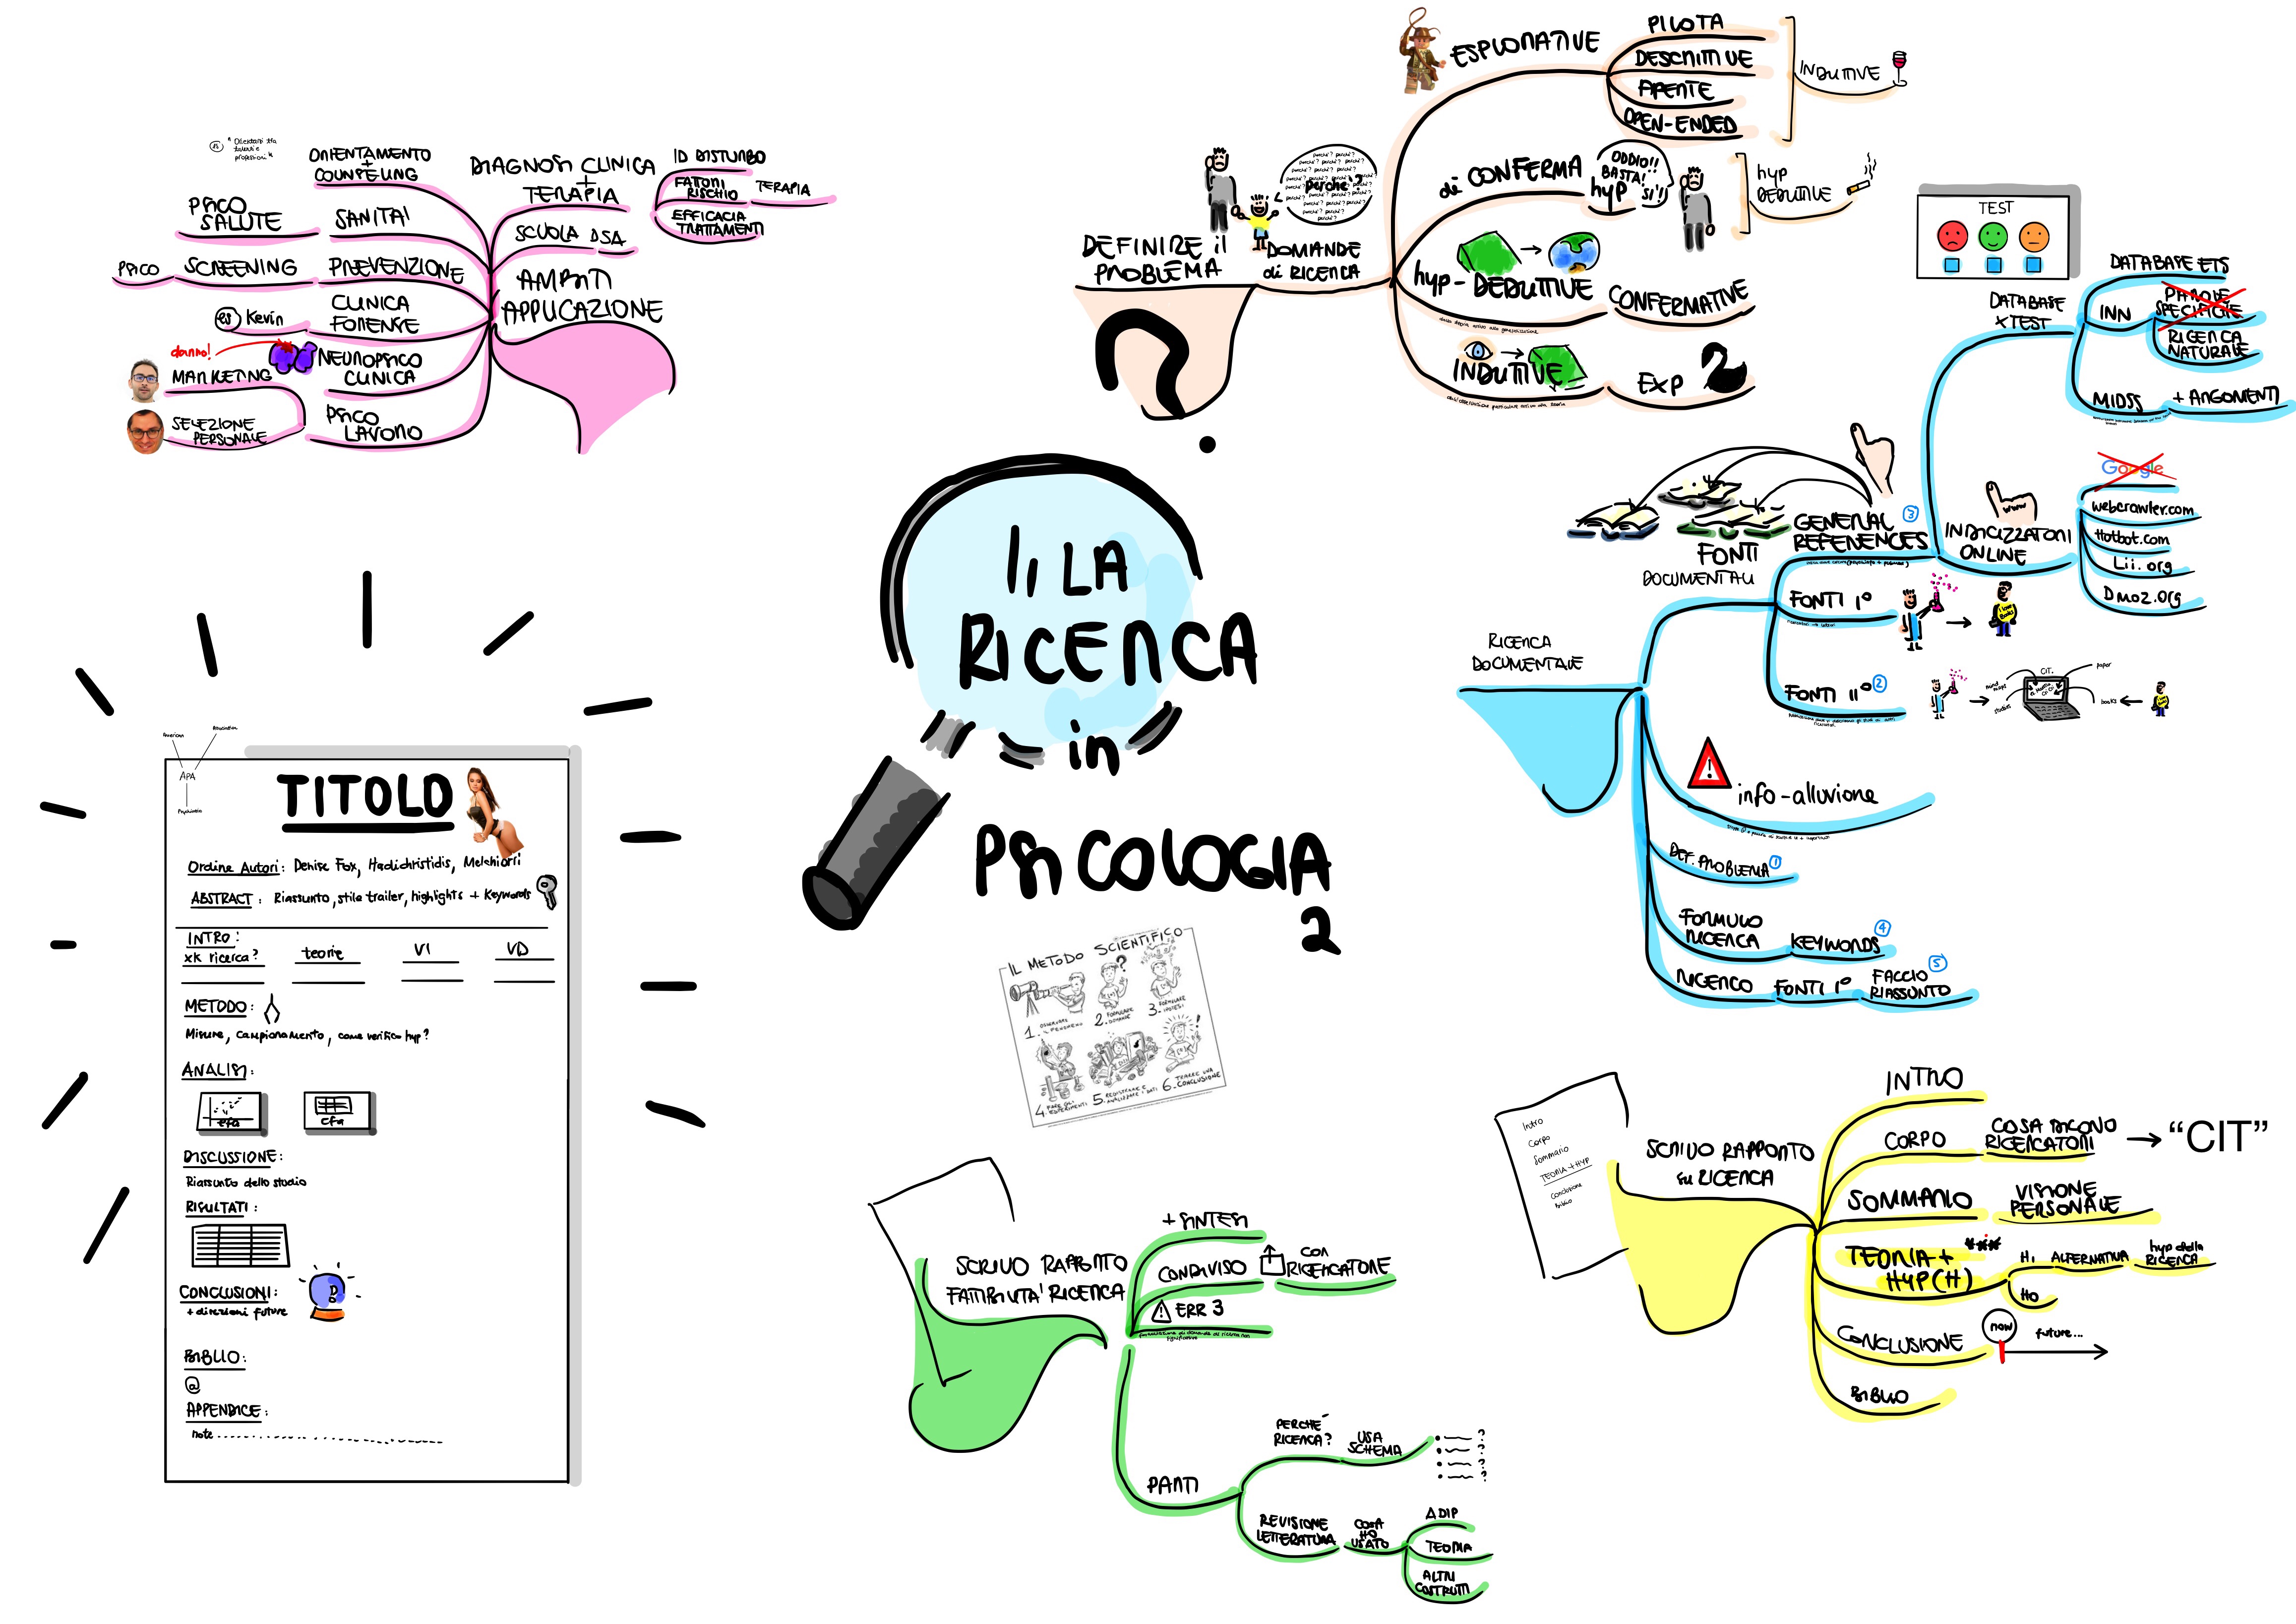 1, LA
RICERCA
in
PSICOLOGIA
2
IL METODO SCIENTIFICO
1. OSSERVARE FENOMENO
2. FORMULARE DOMANDE
3. FORMULARE IPOTESI
4. FARE GLI ESPERIMENTI
5. REGISTRARE E ANALIZZARE I DATI
6. TRARRE UNA CONCLUSIONE
DEFINIRE il
PROBLEMA
?
DOMANDE
di RICERCA
perché?
ESPLORATIVE
PILOTA
DESCRITTIVE
APERTE
OPEN-ENDED
INDUTTIVE
di CONFERMA
hyp
ODDIO!!
BASTA!!
SI'!!
hyp
DEDUTTIVE
hyp-DEDUTTIVE
CONFERMATIVE
INDUTTIVE
EXP
TEST
RICERCA
DOCUMENTALE
FONTI
DOCUMENTALI
GENERAL
REFERENCES
3
DATABASE
x TEST
DATABASE ETS
INN
PAROLE
SPECIFICHE
RICERCA
NATURALE
MIDSS
+ ARGOMENTI
www
INDICIZZATORI
ONLINE
Google
webcrawler.com
Hotbot.com
Lii.org
Dmoz.org
FONTI 1°
I love
books
FONTI 11°
2
mind
maps
studies
CIT.
paper
books
info-alluvione
DEF. PROBLEMA
1
FORMULO
RICERCA
KEYWORDS
4
RICERCO
FONTI 1°
FACCIO
RIASSUNTO
5
Intro
Corpo
Sommario
TEORIA + HYP
Conclusione
Biblio
SCRIVO RAPPORTO
su RICERCA
INTRO
CORPO
COSA DICONO
RICERCATORI
“CIT”
SOMMARIO
VISIONE
PERSONALE
TEORIA +
HYP(H)
H1
ALTERNATIVA
hyp della
RICERCA
H0
CONCLUSIONE
now
future...
BIBLIO
SCRIVO RAPPORTO
FATTIBILITA' RICERCA
+ SINTESI
CONDIVISO
CON
RICERCATORE
ERR 3
PARTI
PERCHÉ
RICERCA?
USA
SCHEMA
?
?
?
?
REVISIONE
LETTERATURA
COSA
HO
USATO
ADIP
TEORIA
ALTRI
COSTRUTTI
American
Association
APA
Psychiatric
TITOLO
Ordine Autori: Denise Fox, Hadichristidis, Melchiorri
ABSTRACT: Riassunto, stile trailer, highlights + Keywords
INTRO:
xk ricerca?
teorie
VI
VD
METODO:
Misure, campionamento, come verifico hyp?
ANALISI:
efa
cfa
DISCUSSIONE:
Riassunto dello studio
RISULTATI:
CONCLUSIONI:
+ direzioni future
BIBLIO:
@
APPENDICE:
note
AMBITI
APPLICAZIONE
DIAGNOSI CLINICA
+
TERAPIA
ID DISTURBO
FATTORI
RISCHIO
TERAPIA
EFFICACIA
TRATTAMENTI
SCUOLA DSA
ORIENTAMENTO
+
COUNSELING
es
" Orientarsi tra
talenti e
professioni "
SANITA'
PSICO
SALUTE
PREVENZIONE
SCREENING
PSICO
CLINICA
FORENSE
es Kevin
NEUROPSICO
CLINICA
danno!
PSICO
LAVORO
MARKETING
SELEZIONE
PERSONALE